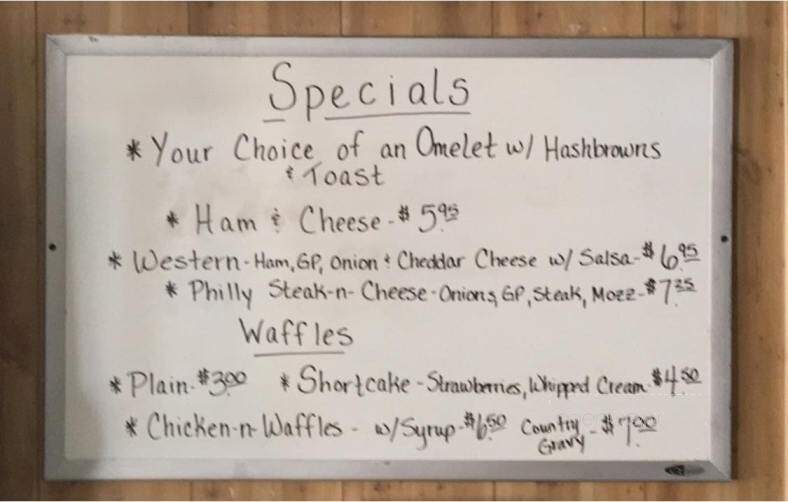 Specials
* Your Choice of an Omelet w/ Hashbrowns
& Toast
* Ham & Cheese - $5.95
* Western - Ham, GP, Onion & Cheddar Cheese w/ Salsa - $6.95
* Philly Steak-n-Cheese - Onions, GP, Steak, Mozz - $7.25
Waffles
* Plain - $3.00 * Shortcake - Strawberries, Whipped Cream $4.50
* Chicken-n-Waffles - w/ Syrup - $6.50 Country Gravy - $7.00